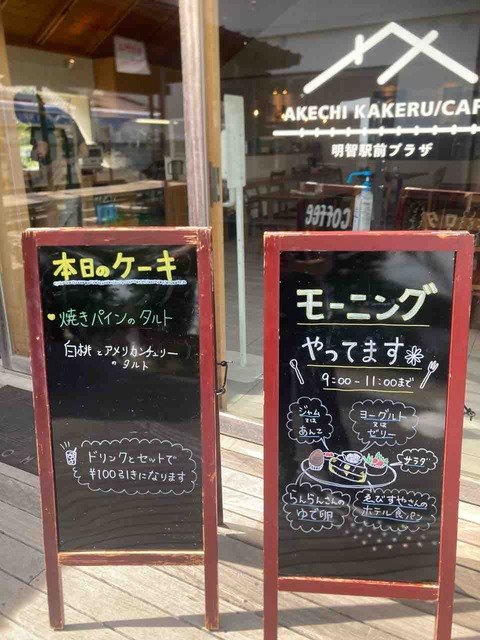 AKECHI KAKERU/CAF
明智駅前プラザ
COFFEE
本日のケーキ
焼きパインのタルト
白桃とアメリカンチェリー
のタルト
ドリンクとセットで
¥100引きになります
モーニング
やってます
9:00-11:00まで
ジャム
又は
あんこ
ヨーグルト
又は
ゼリー
サラダ
らんらんさんの
ゆで卵
ゑびすやさんの
ホテル食パン